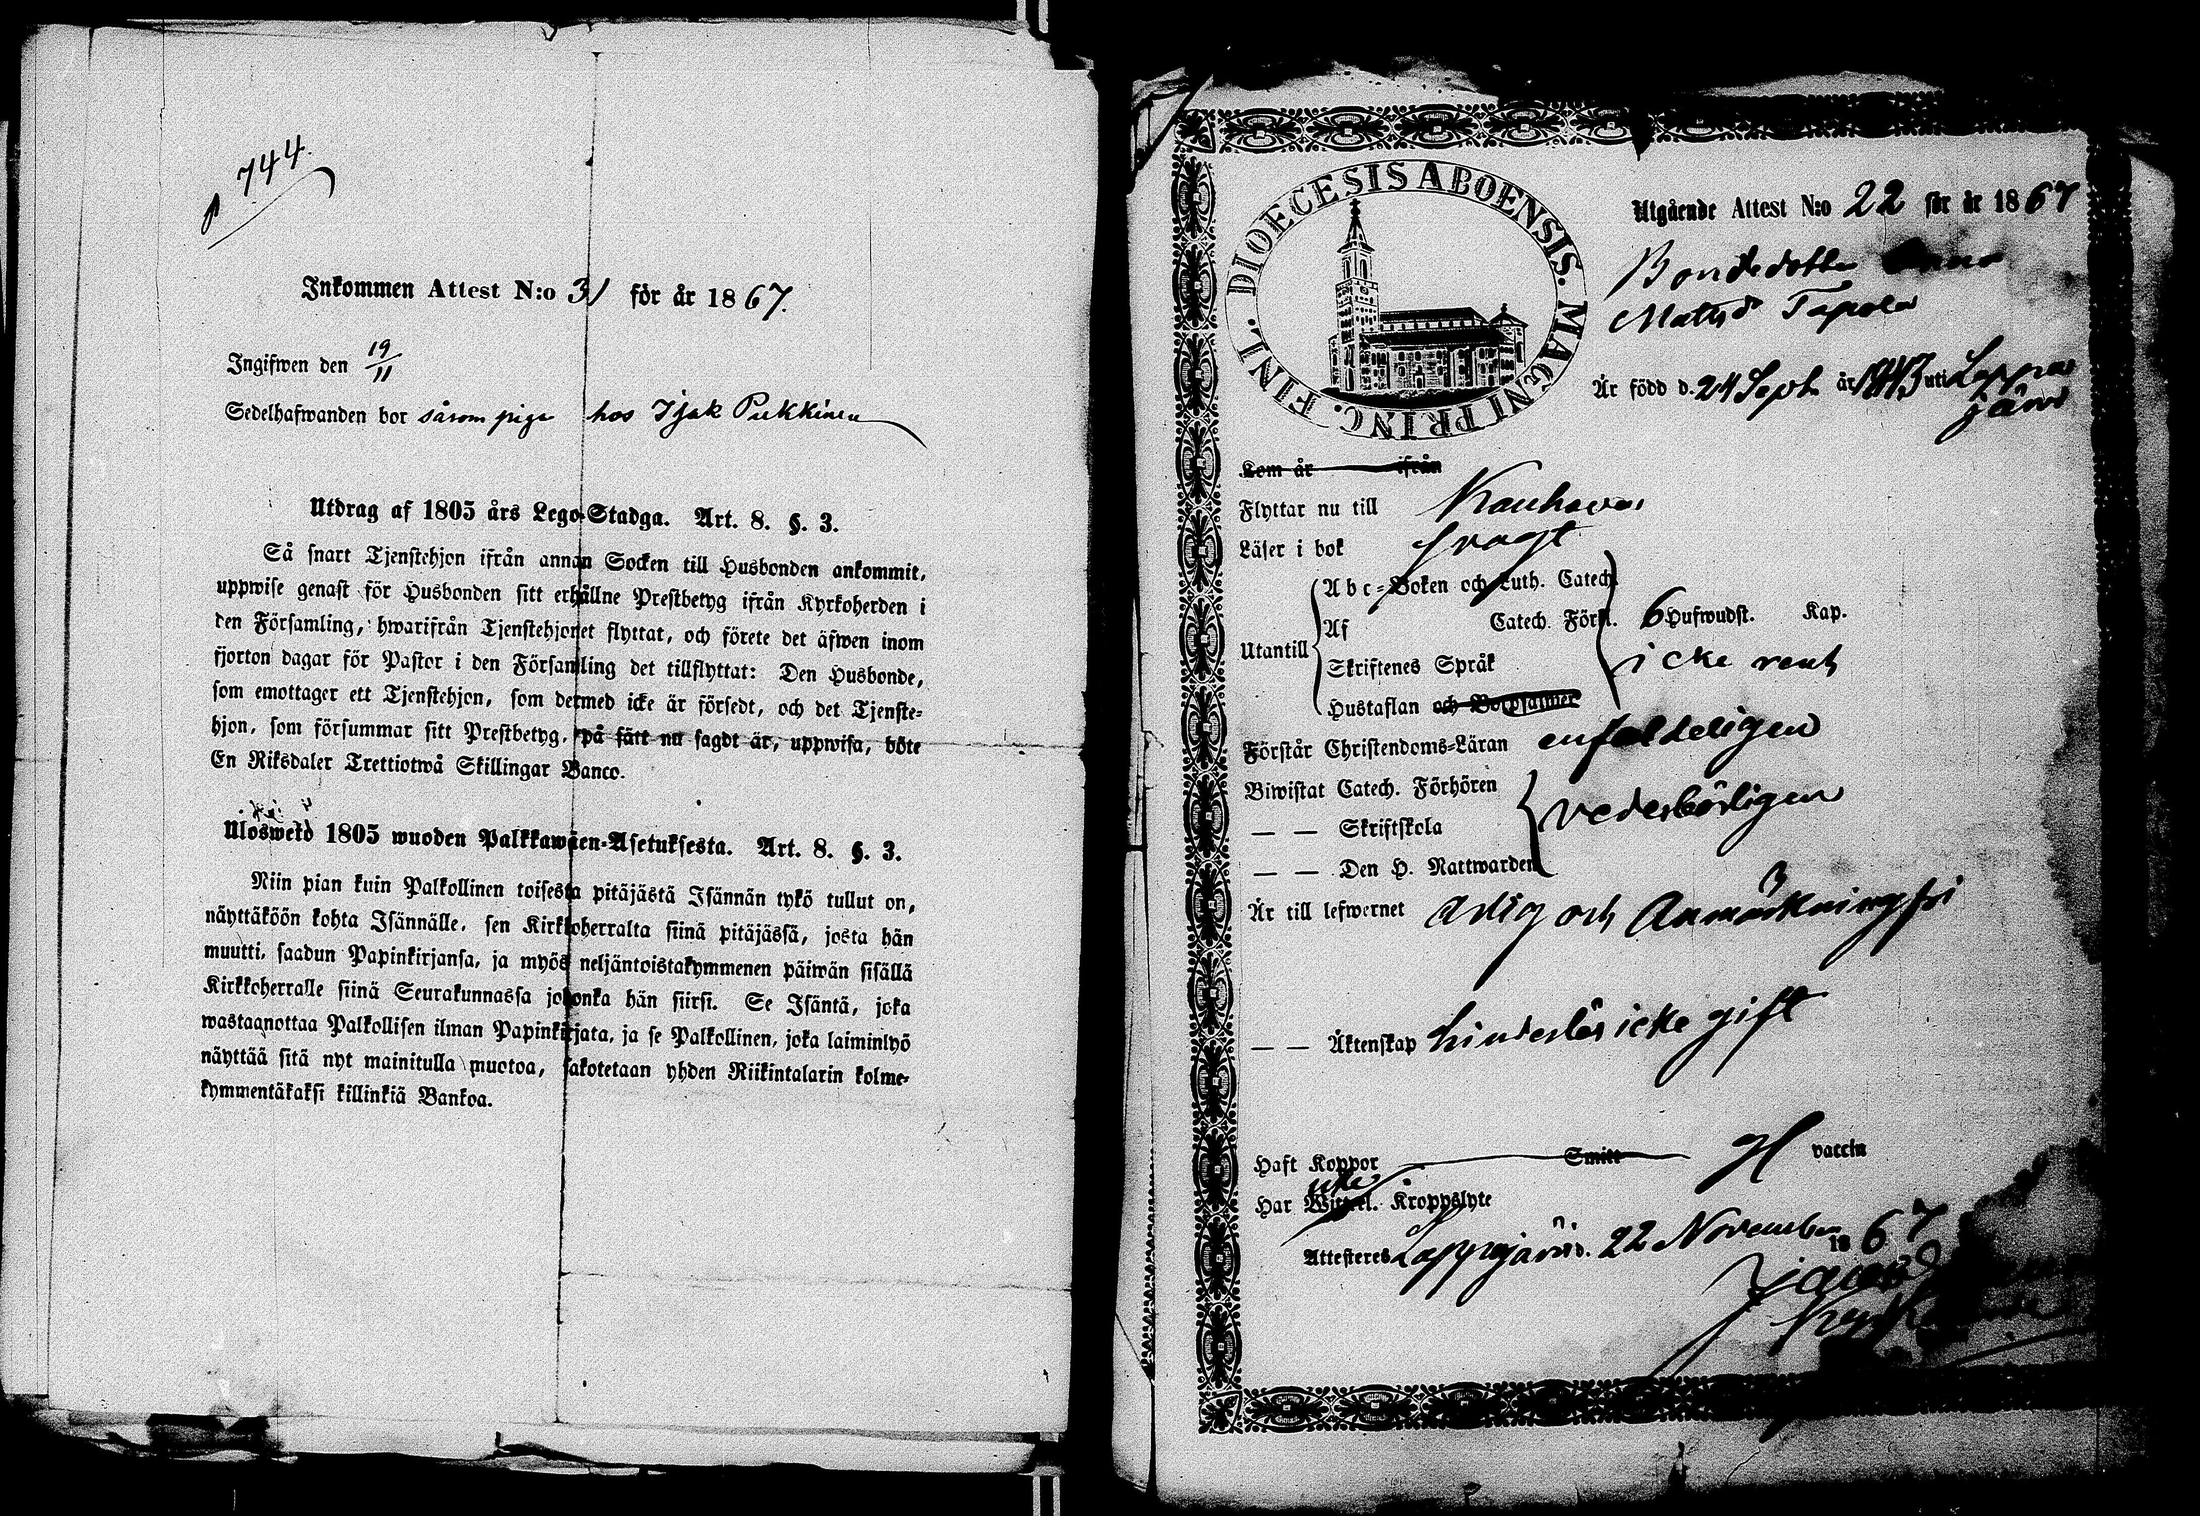 p 744.
Inkommen Attest N:o 31 för år 1867.
Ingifwen den 19/11
Sedelhafwanden bor såsom piga hos Isak Pukkinen
Utdrag af 1805 års Lego-Stadga. Art. 8. §. 3.
Så snart Tjenstehjon ifrån annan Socken till Husbonden ankommit,
uppwise genast för Husbonden sitt erhållne Prestbetyg ifrån Kyrkoherden i
den Församling, hwarifrån Tjenstehjonet flyttat, och förete det äfwen inom
fjorton dagar för Pastor i den Församling det tillflyttat: Den Husbonde,
som emottager ett Tjenstehjon, som dermed icke är försedt, och det Tjenste=
hjon, som försummar sitt Prestbetyg, på sätt nu sagdt är, uppwisa, böte
En Riksdaler Trettiotwå Skillingar Banco.
Uloswetd 1805 wuoden Palkkawäen-Asetuksesta. Art. 8. §. 3.
Niin pian kuin Palkollinen toisesta pitäjästä Isännän tykö tullut on,
näyttäköön kohta Isännälle, sen Kirkkoherralta siinä pitäjässä, josta hän
muutti, saadun Papinkirjansa, ja myös neljäntoistakymmenen päiwän sisällä
Kirkkoherralle siinä Seurakunnassa johonka hän siirsi. Se Isäntä, joka
wastaanottaa Palkollisen ilman Papinkirjata, ja se Palkollinen, joka laiminlyö
näyttää sitä nyt mainitulla muotoa, sakotetaan yhden Riikintalarin kolme=
kymmentäkaksi killinkiä Bankoa.
FINL. DIOECESIS ABOENSIS. MAGNI PRINC.
Utgående Attest N:o 22 för år 1867
Bondedottn Anna
Mattsd Tapola
Är född d. 24 Sept. år 1843 uti Lappa
järvi
Kom år ifrån
Flyttar nu till Kauhava
Läser i bok svagt
Abc=Boken och Luth. Catech.
Utantill Af Catech. Förkl. 6 Hufwudst. Kap.
Skriftenes Språk icke rent
Hustaflan och Botpsalmer
Förstår Christendoms=Läran enfaldeligen
Biwistat Catech. Förhören
— — Skriftskola vederbörligen
— — Den H. Nattwarden
Är till lefwernet ärlig och Anmärkningsfri
— — Äktenskap hinderlös icke gift
Haft Koppor Smitt H vaccin
Har icke Kroppslyte
Attesteres Lappajärvi d. 22 November 1867
Jacob